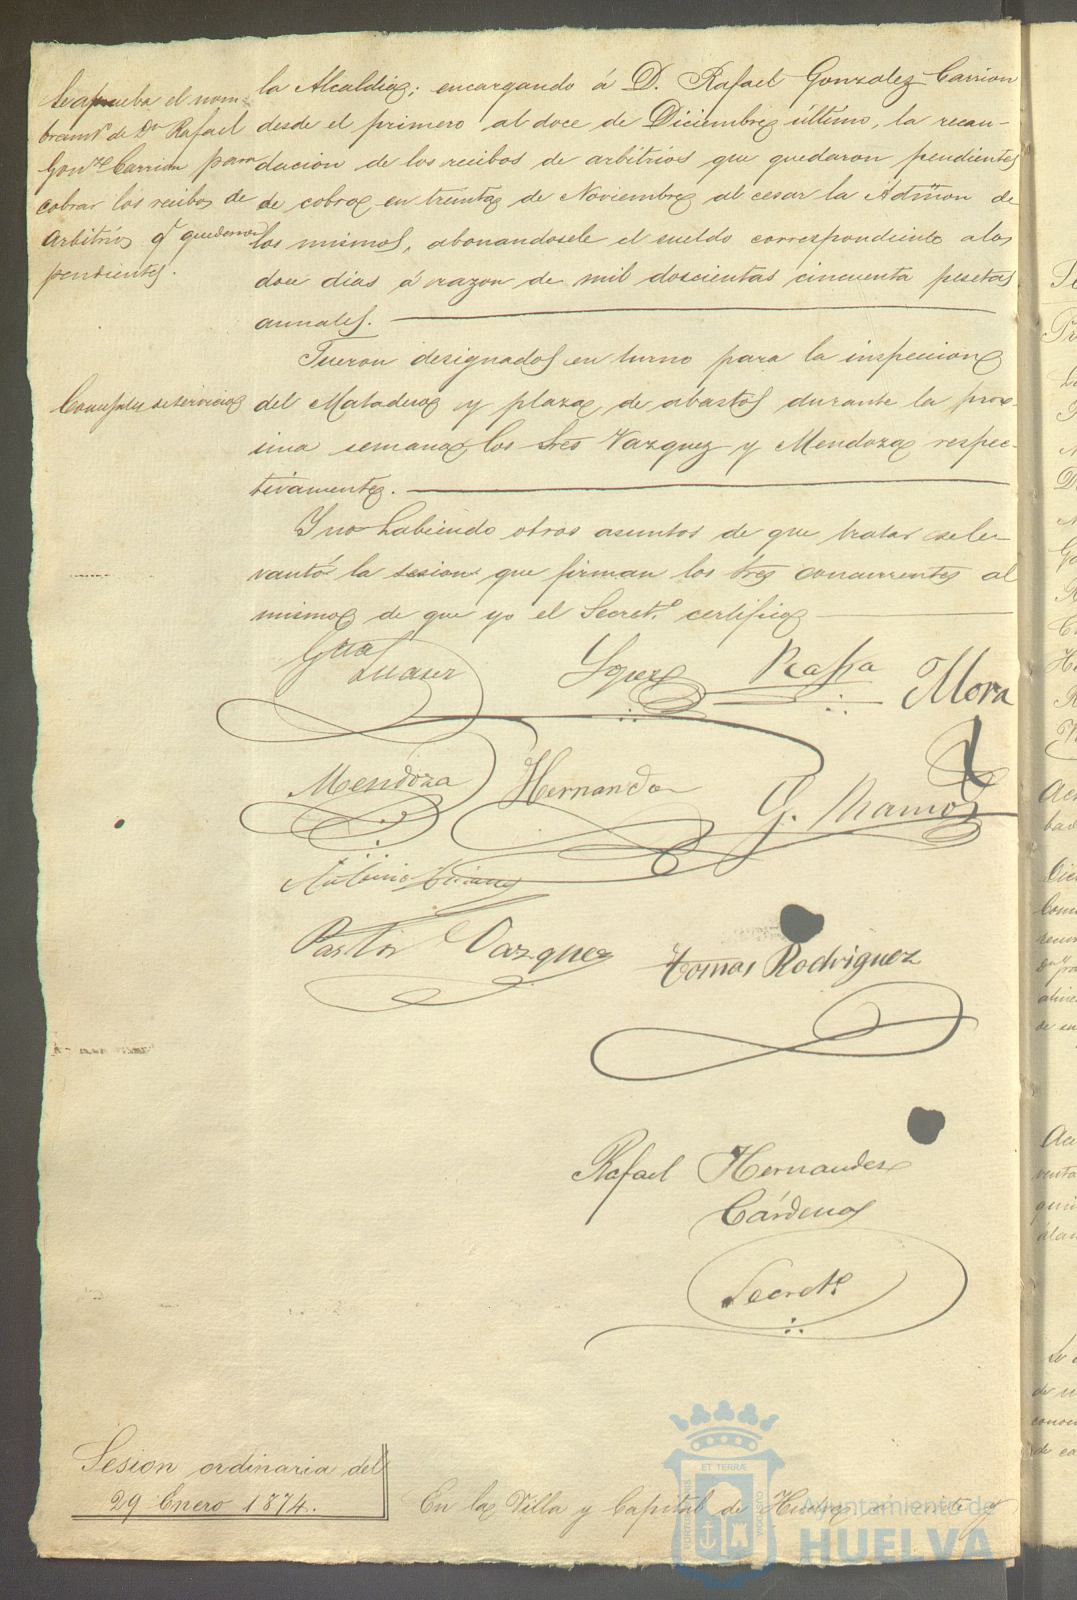 Se aprueba el nom-
bramto de Dn Rafael
Gonz Carrion para
cobrar los recibos de
Arbitrios q quedaron
pendientes.
la Alcaldia; encargando á D. Rafael Gonzalez Carrion
desde el primero al doce de Diciembre último, la recau-
dacion de los recibos de arbitrios que quedaron pendientes
de cobro en treinta de Noviembre al cesar la Admon de
los mismos, abonandosele el sueldo correspondiente a los
doce dias á razon de mil doscientas cincuenta pesetas
anuales.
Concejales de servicio
Fueron designados en turno para la inspeccion
del Matadero y plaza de abastos durante la prox-
ima semana los Sres Vazquez y Mendoza respec-
tivamente.
Y no habiendo otros asuntos de que tratar se le-
vantó la sesion que firman los Sres concurrentes al
mismo de que yo el Secreto certifico
Lopez Mora
Mendoza Hernandez G. Ramos
Antonio
Pastor Vazquez Tomas Rodriguez
Rafael Hernandez
Cárdenas
Secreto
Sesion ordinaria del
29 Enero 1874.
En la Villa y Capital de Huelva a veinte y
ET TERRÆ
Ayuntamiento de
HUELVA